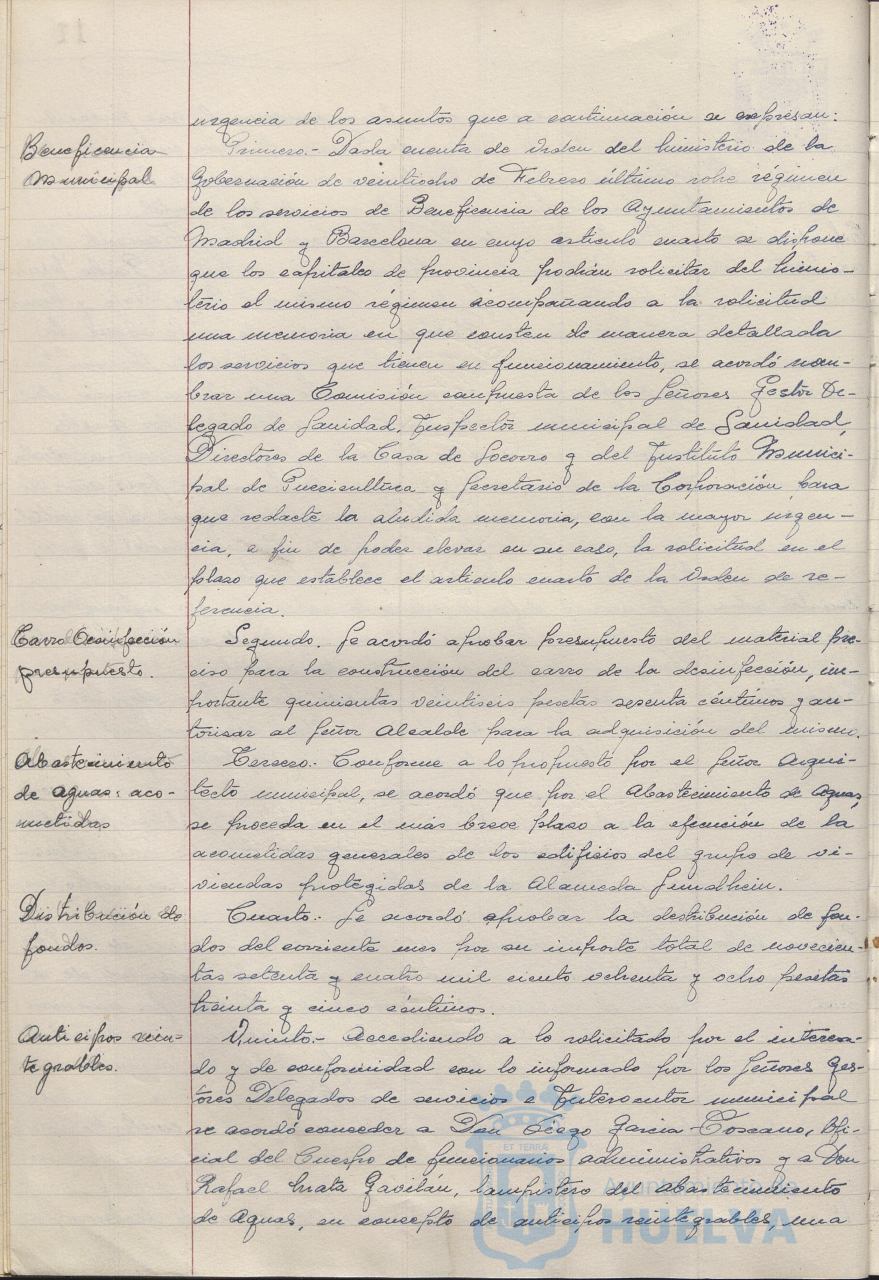 urgencia de los asuntos que a continuación se expresan:
Beneficencia
municipal.
Primero.- Dada cuenta de Orden del Ministerio de la
Gobernación de veintiocho de Febrero último sobre régimen
de los servicios de Beneficencia de los Ayuntamientos de
Madrid y Barcelona en cuyo artículo cuarto se dispone
que los capitales de provincia podrán solicitar del Minis-
terio el mismo régimen acompañando a la solicitud
una memoria en que consten de manera detallada
los servicios que tienen en funcionamiento, se acordó nom-
brar una Comisión compuesta de los Señores Gestor De-
legado de Sanidad, Inspector municipal de Sanidad,
Directores de la Casa de Socorro y del Instituto Munici-
pal de Puericultura y Secretario de la Corporación para
que redacte la aludida memoria, con la mayor urgen-
cia, a fin de poder elevar en su caso, la solicitud en el
plazo que establece el artículo cuarto de la Orden de re-
ferencia.
Carro Desinfección
presupuesto.
Segundo. Se acordó aprobar presupuesto del material pre-
ciso para la construcción del carro de la desinfección, im-
portante quinientas veintiseis pesetas sesenta céntimos y au-
torizar al Señor Alcalde para la adquisición del mismo.
Abastecimiento
de aguas: aco-
metidas
Tercero.- Conforme a lo propuesto por el Señor Arqui-
tecto municipal, se acordó que por el Abastecimiento de Aguas,
se proceda en el más breve plazo a la ejecución de la
acometidas generales de los edificios del grupo de vi-
viendas protegidas de la Alameda Sundhein.
Distribución de
fondos.
Cuarto.- Se acordó aprobar la distribución de fon-
dos del corriente mes por su importe total de novecien-
tas setenta y cuatro mil ciento ochenta y ocho pesetas
treinta y cinco céntimos.
Anticipos rein-
tegrables.
Quinto.- Accediendo a lo solicitado por el interesa-
do y de conformidad con lo informado por los Señores Ges-
tores Delegados de servicios e Interventor municipal
se acordó conceder a Don Diego Garcia Toscano, Ofi-
cial del Cuerpo de funcionarios administrativos y a Don
Rafael Mata Gavilán, lampistero del Abastecimiento
de Aguas, en concepto de anticipos reintegrables, una
ET TERRA
Ayuntamiento de
HUELVA